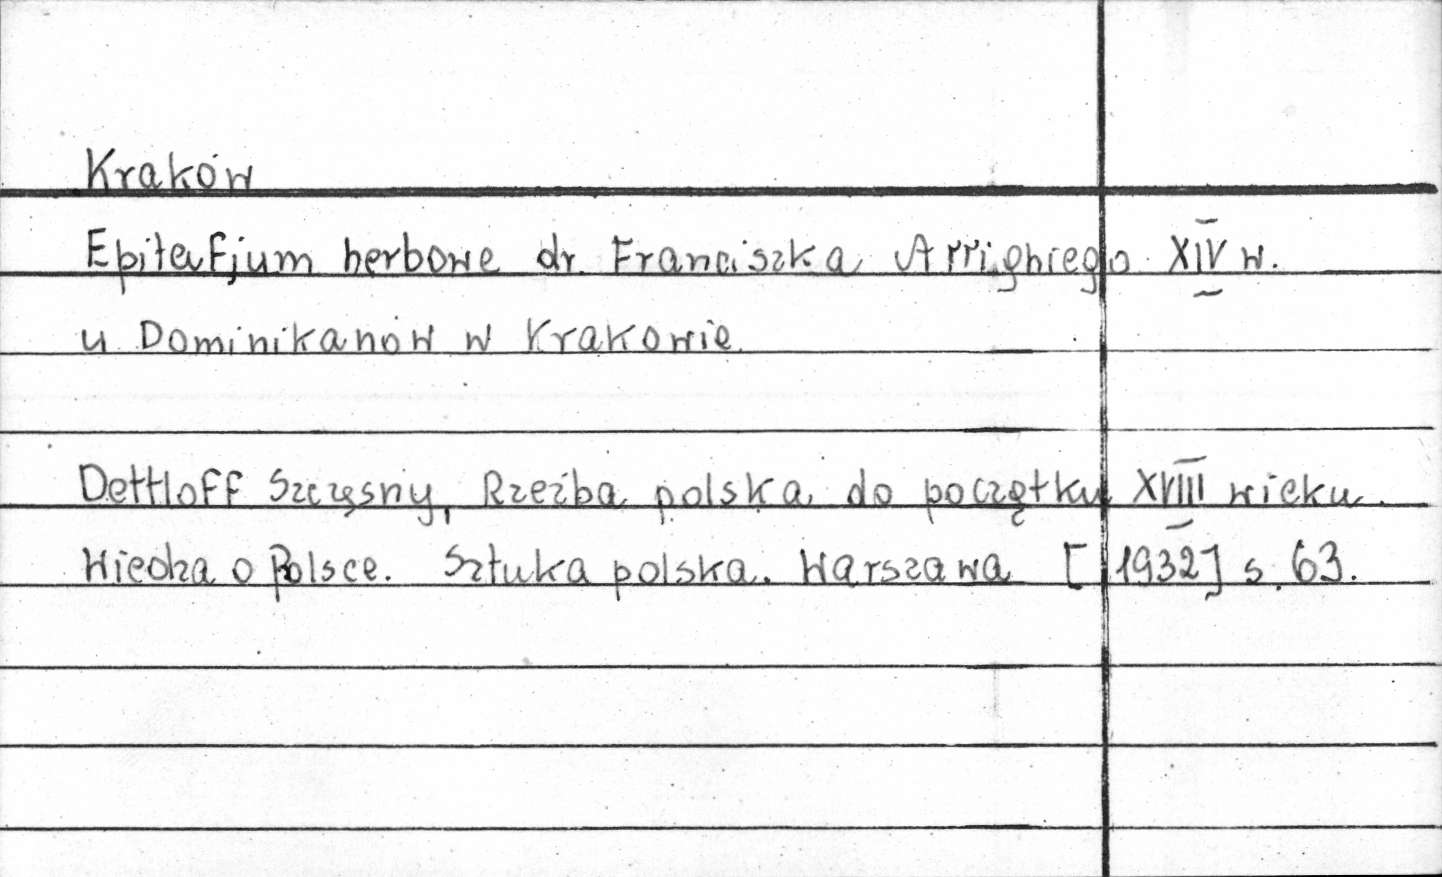 Kraków
Epitafjum herbowe dr. Franciszka Arrighiego XIV w.
u Dominikanów w Krakowie
Dettloff Szczęsny, Rzeźba polska do początku XVIII wieku.
Wiedza o Polsce. Sztuka polska. Warszawa [1932] s. 63.